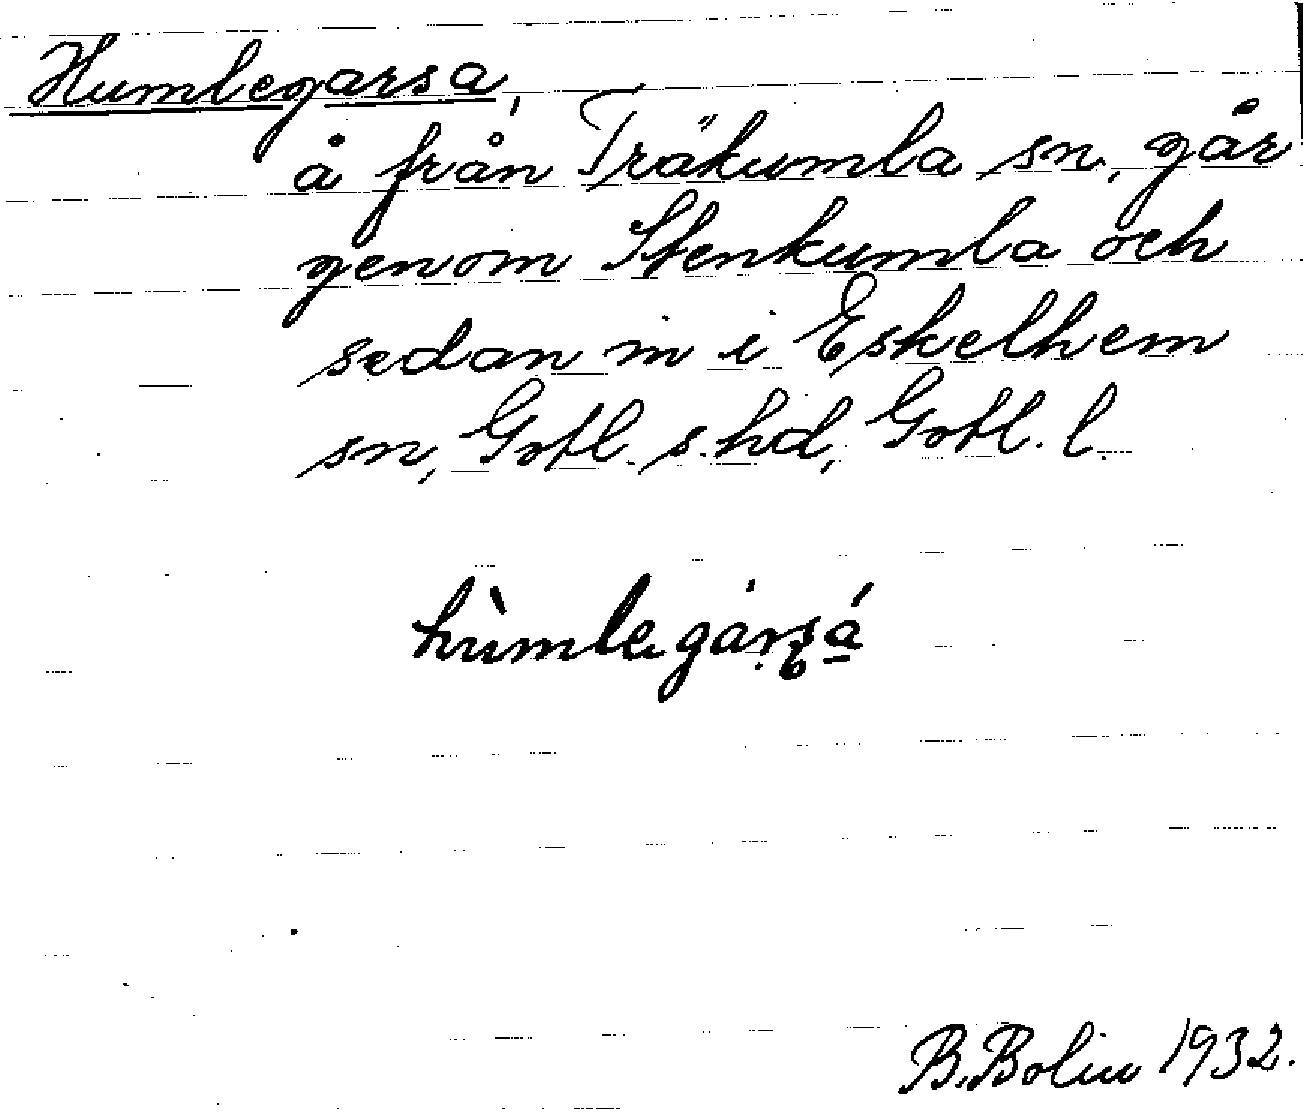 Humlegarsa,
å från Träkumla sn, går
genom Stenkumla och
sedan in i Eskelhem
sn, Gotl. s. hd, Gotl. l.
B. Bolin 1932.